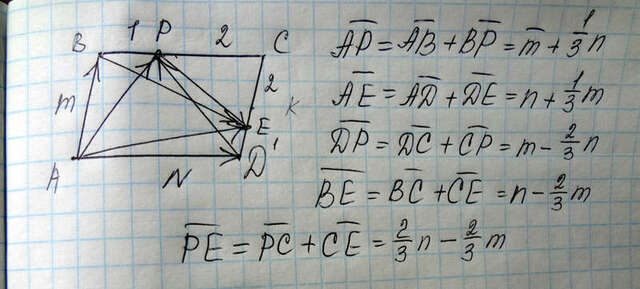 1 2
B P C
m 2
K
E
1
A N D
\overline{AP} = \overline{AB} + \overline{BP} = \overline{m} + \frac{1}{3}n
\overline{AE} = \overline{AD} + \overline{DE} = n + \frac{1}{3}m
\overline{DP} = \overline{DC} + \overline{CP} = m - \frac{2}{3}n
\overline{BE} = \overline{BC} + \overline{CE} = n - \frac{2}{3}m
\overline{PE} = \overline{PC} + \overline{CE} = \frac{2}{3}n - \frac{2}{3}m